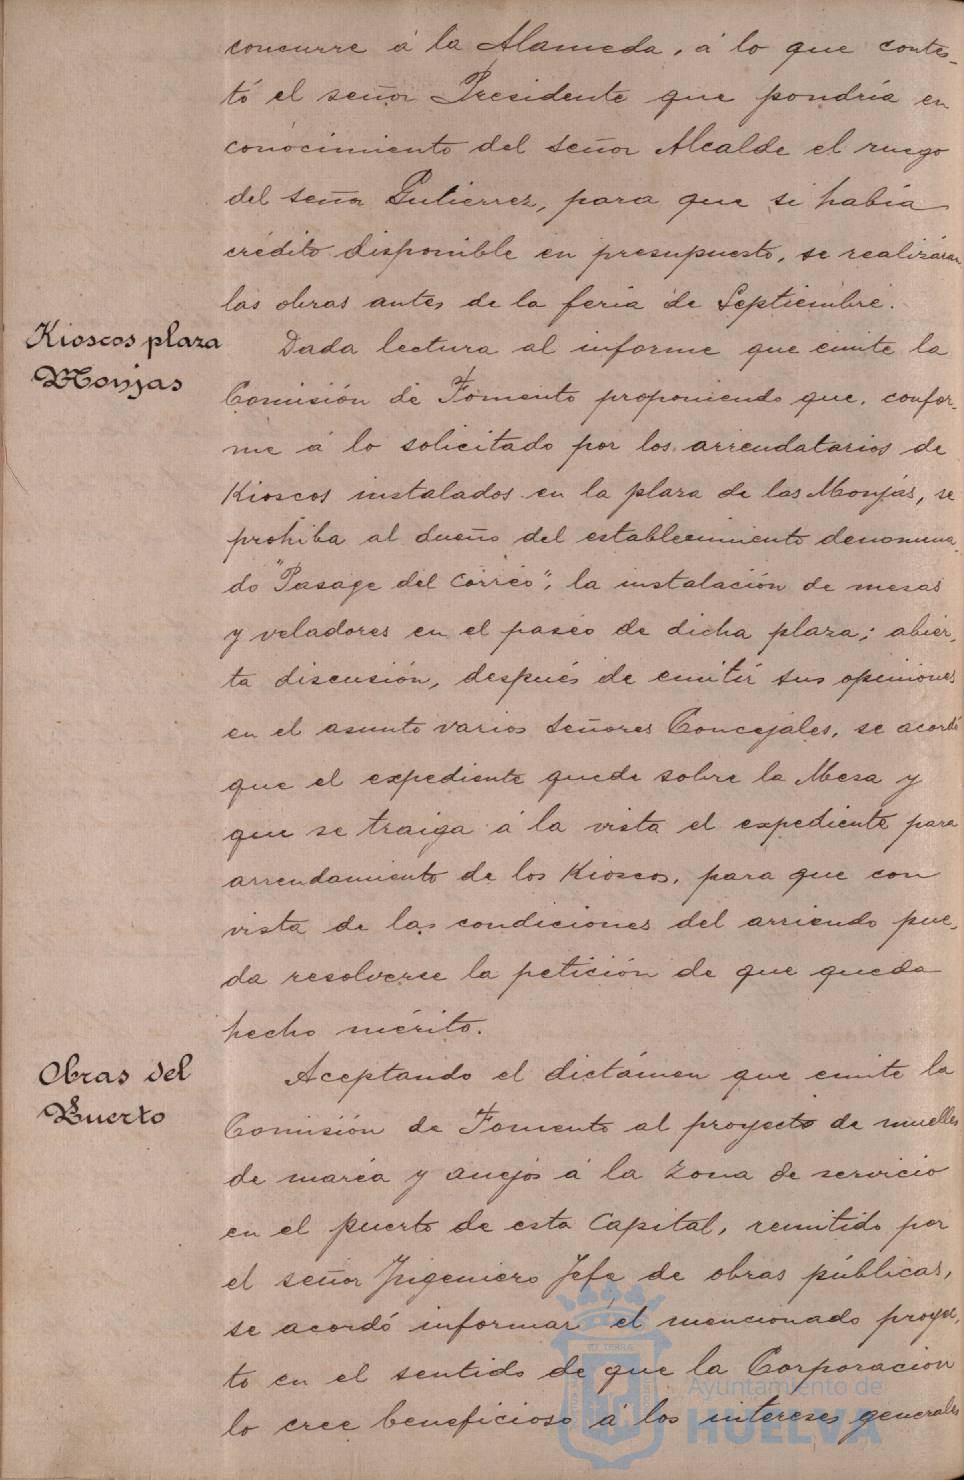 concurre á la Alameda, á lo que contes-
tó el señor Presidente que pondría en
conocimiento del señor Alcalde el ruego
del señor Gutierrez, para que si había
crédito disponible en presupuesto, se realizáran
las obras antes de la feria de Septiembre.
Kioscos plaza
Monjas
Dada lectura al informe que emite la
Comisión de Fomento proponiendo que, confor-
me á lo solicitado por los arrendatarios de
Kioscos instalados en la plaza de las Monjas, se
prohiba al dueño del establecimiento denomina-
do "Pasage del Correo", la instalación de mesas
y veladores en el paseo de dicha plaza; abier-
ta discusión, después de emitir sus opiniones
en el asunto varios señores Concejales, se acordó
que el expediente quede sobre la Mesa y
que se traiga á la vista el expediente para
arrendamiento de los Kioscos, para que con
vista de las condiciones del arriendo pue-
da resolverse la petición de que queda
hecho mérito.
Obras del
Puerto
Aceptando el dictámen que emite la
Comisión de Fomento al proyecto de muelles
de maréa y anejos á la zona de servicio
en el puerto de esta Capital, remitido por
el señor Ingeniero Jefe de obras públicas,
se acordó informar el mencionado proyec-
to en el sentido de que la Corporación
lo cree beneficioso á los intereses generales
Ayuntamiento de
HUELVA